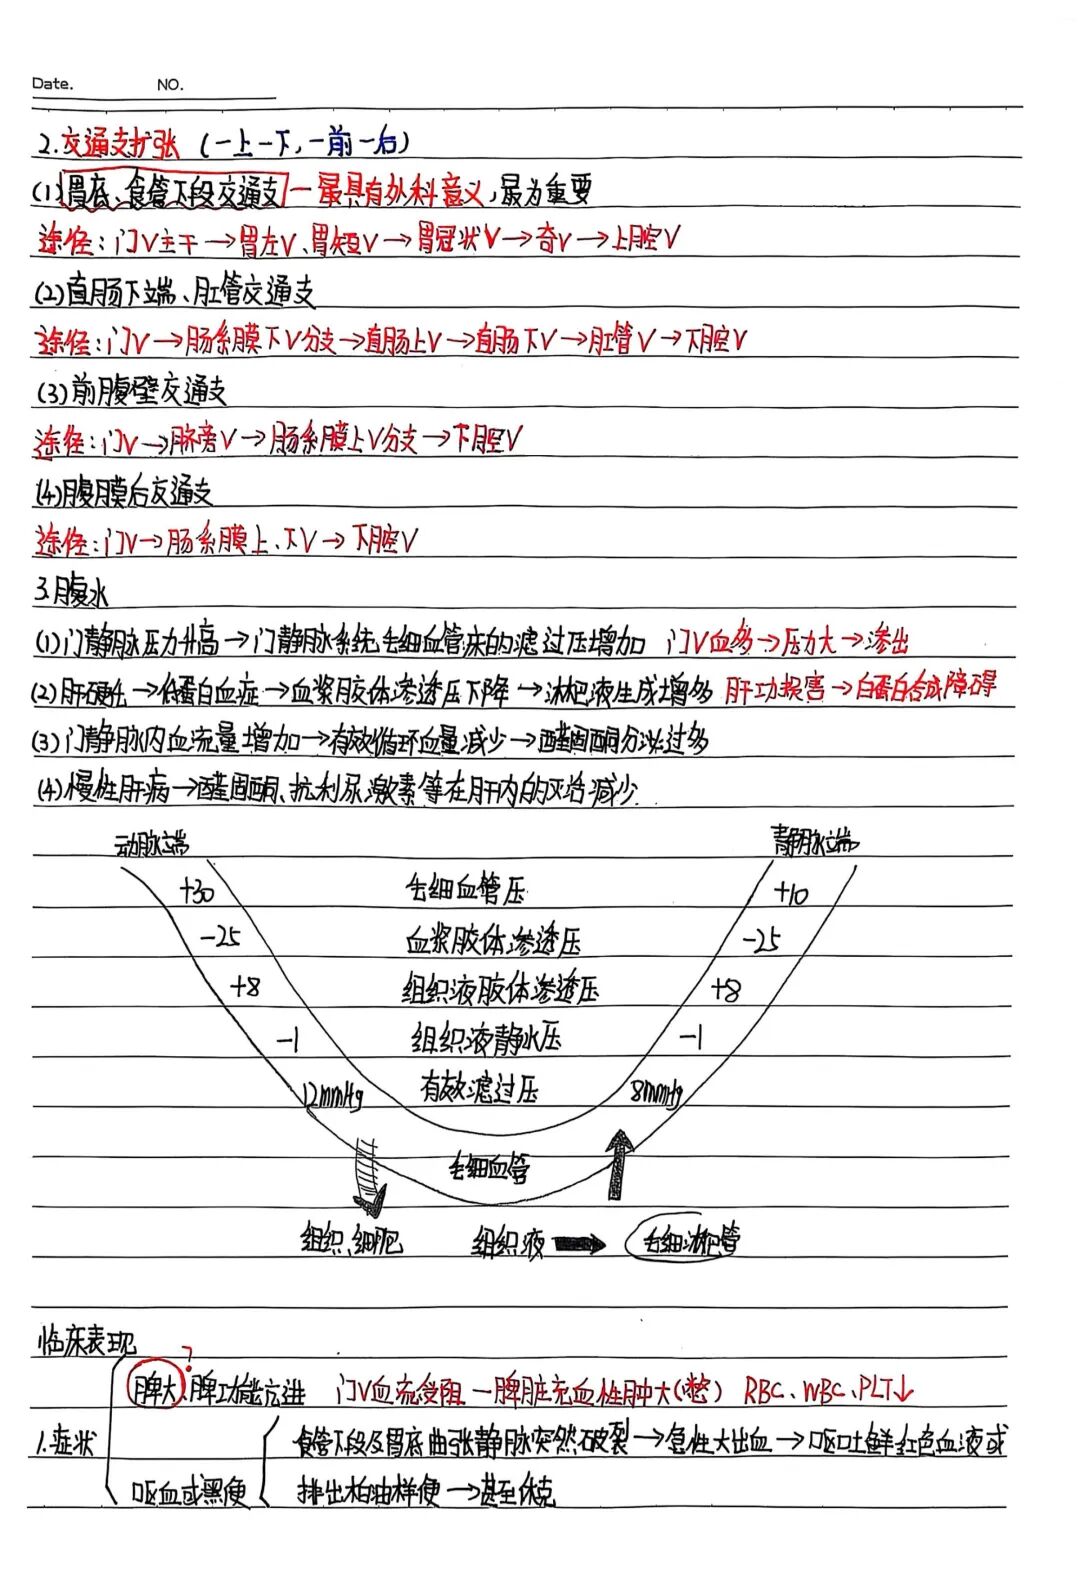 Date. NO.
2.交通支扩张 (一上一下,一前一后)
(1)胃底、食管下段交通支—最具有外科意义,最为重要
途径:门V主干→胃左V、胃短V→胃冠状V→奇V→上腔V
(2)直肠下端、肛管交通支
途径:门V→肠系膜下V分支→直肠上V→直肠下V→肛管V→下腔V
(3)前腹壁交通支
途径:门V→脐旁V→肠系膜上V分支→下腔V
(4)腹膜后交通支
途径:门V→肠系膜上、下V→下腔V
3.腹水
(1)门静脉压力升高→门静脉系统毛细血管床的滤过压增加 门V血多→压力大→渗出
(2)肝硬化→低蛋白血症→血浆胶体渗透压下降→淋巴液生成增多 肝功损害→白蛋白合成障碍
(3)门静脉内血流量增加→有效循环血量减少→醛固酮分泌过多
(4)慢性肝病→醛固酮、抗利尿激素等在肝内的灭活减少.
动脉端 静脉端
+30 毛细血管压 +10
-25 血浆胶体渗透压 -25
+8 组织液胶体渗透压 +8
-1 组织液静水压 -1
12mmHg 有效滤过压 8mmHg
毛细血管
组织细胞 组织液 毛细淋巴管
临床表现
?
脾大、脾功能亢进 门V血流受阻—脾脏充血性肿大(憋) RBC、WBC、PLT↓
1.症状 食管下段及胃底曲张静脉突然破裂→急性大出血→呕吐鲜红色血液或
呕血或黑便 排出柏油样便→甚至休克